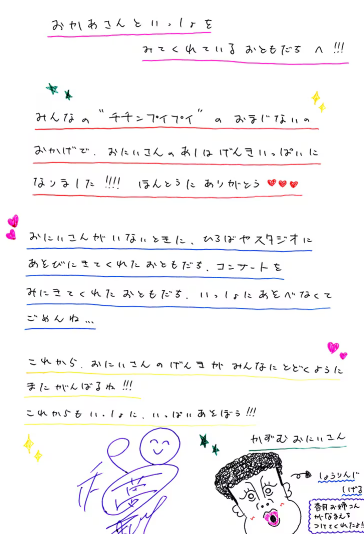 おかあさんといっしょを
みてくれている おともだち へ !!!
みんなの "チチンプイプイ" の おまじないの
おかげで、おにいさんのあしは げんきいっぱいに
なりました !!!! ほんとうに ありがとう
おにいさんが いないときに、ひろばや スタジオに
あそびにきてくれた おともだち、コンサートを
みにきてくれた おともだち、いっしょに あそべなくて
ごめんね...
これから、おにいさんの げんきが みんなに とどくように
また がんばるね !!!
これからも いっしょに、いっぱい あそぼう !!!
かずむ おにいさん
しょうりんじ